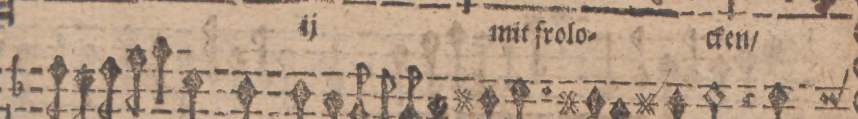 ij mit frolo- cken/